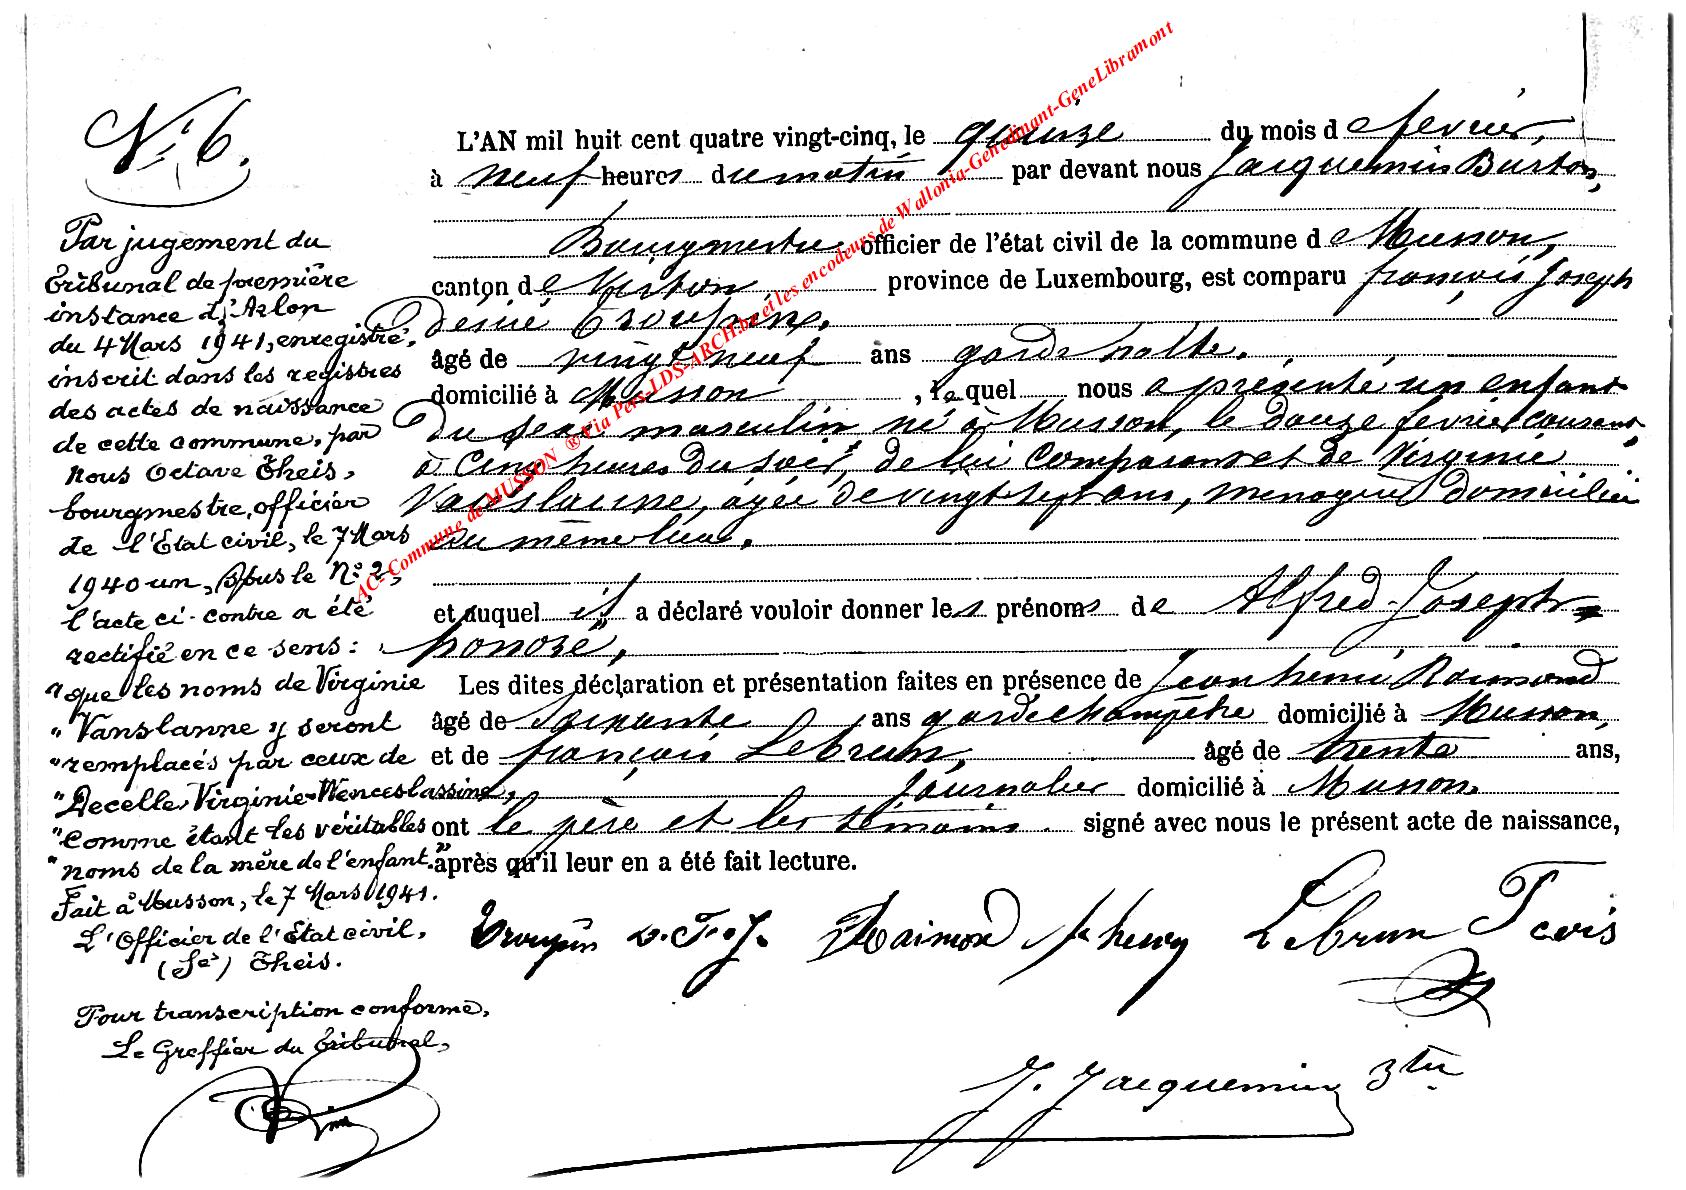 N° 6.
Par jugement du
Tribunal de première
instance d'Arlon
du 4 Mars 1941, enregistré,
inscrit dans les registres
des actes de naissance
de cette commune, par
Nous Octave Theis,
bourgmestre, officier
de l'Etat civil, le 7 Mars
1940 un, sous le N° 2,
l'acte ci-contre a été
rectifié en ce sens :
"que les noms de Virginie
"Vanslanne y seront
"remplacés par ceux de
"Decelle, Virginie-Wenceslassine,
"comme étant les véritables
"noms de la mère de l'enfant."
Fait à Musson, le 7 Mars 1941.
L'Officier de l'Etat civil,
(Sé) Theis.
Pour transcription conforme,
Le Greffier du Tribunal,
L'AN mil huit cent quatre vingt-cinq, le quinze du mois de fevrier,
à neuf heures du matin par devant nous Jacquemin Burton,
Bourgmestre officier de l'état civil de la commune de Musson,
canton de Virton province de Luxembourg, est comparu françois Joseph
Desiré Troupin,
âgé de vingt neuf ans garde halte.
domicilié à Musson, lequel nous a présenté un enfant
du sexe masculin, né à Musson, le douze fevrier courant
à cinq heures du soir, de lui comparant et de Virginie
Vanslanne, agée de vingt sept ans, menagère domiciliée
au même lieu.
et auquel il a déclaré vouloir donner les prénoms de Alfred-Joseph-
honoré,
Les dites déclaration et présentation faites en présence de Jean henri Raimond
âgé de soixante ans garde champêtre domicilié à Musson,
et de françois Lebrun, âgé de trente ans,
journalier domicilié à Musson
ont le père et les témoins signé avec nous le présent acte de naissance,
après qu'il leur en a été fait lecture.
Troupin D. F. J. Raimond J. henry Lebrun Fcois
J. Jacquemin Btu
AC- Commune de MUSSON ® Via Pers-LDS-ARCH.be et les encodeurs de Wallonia-Genedinant-GéneLibramont